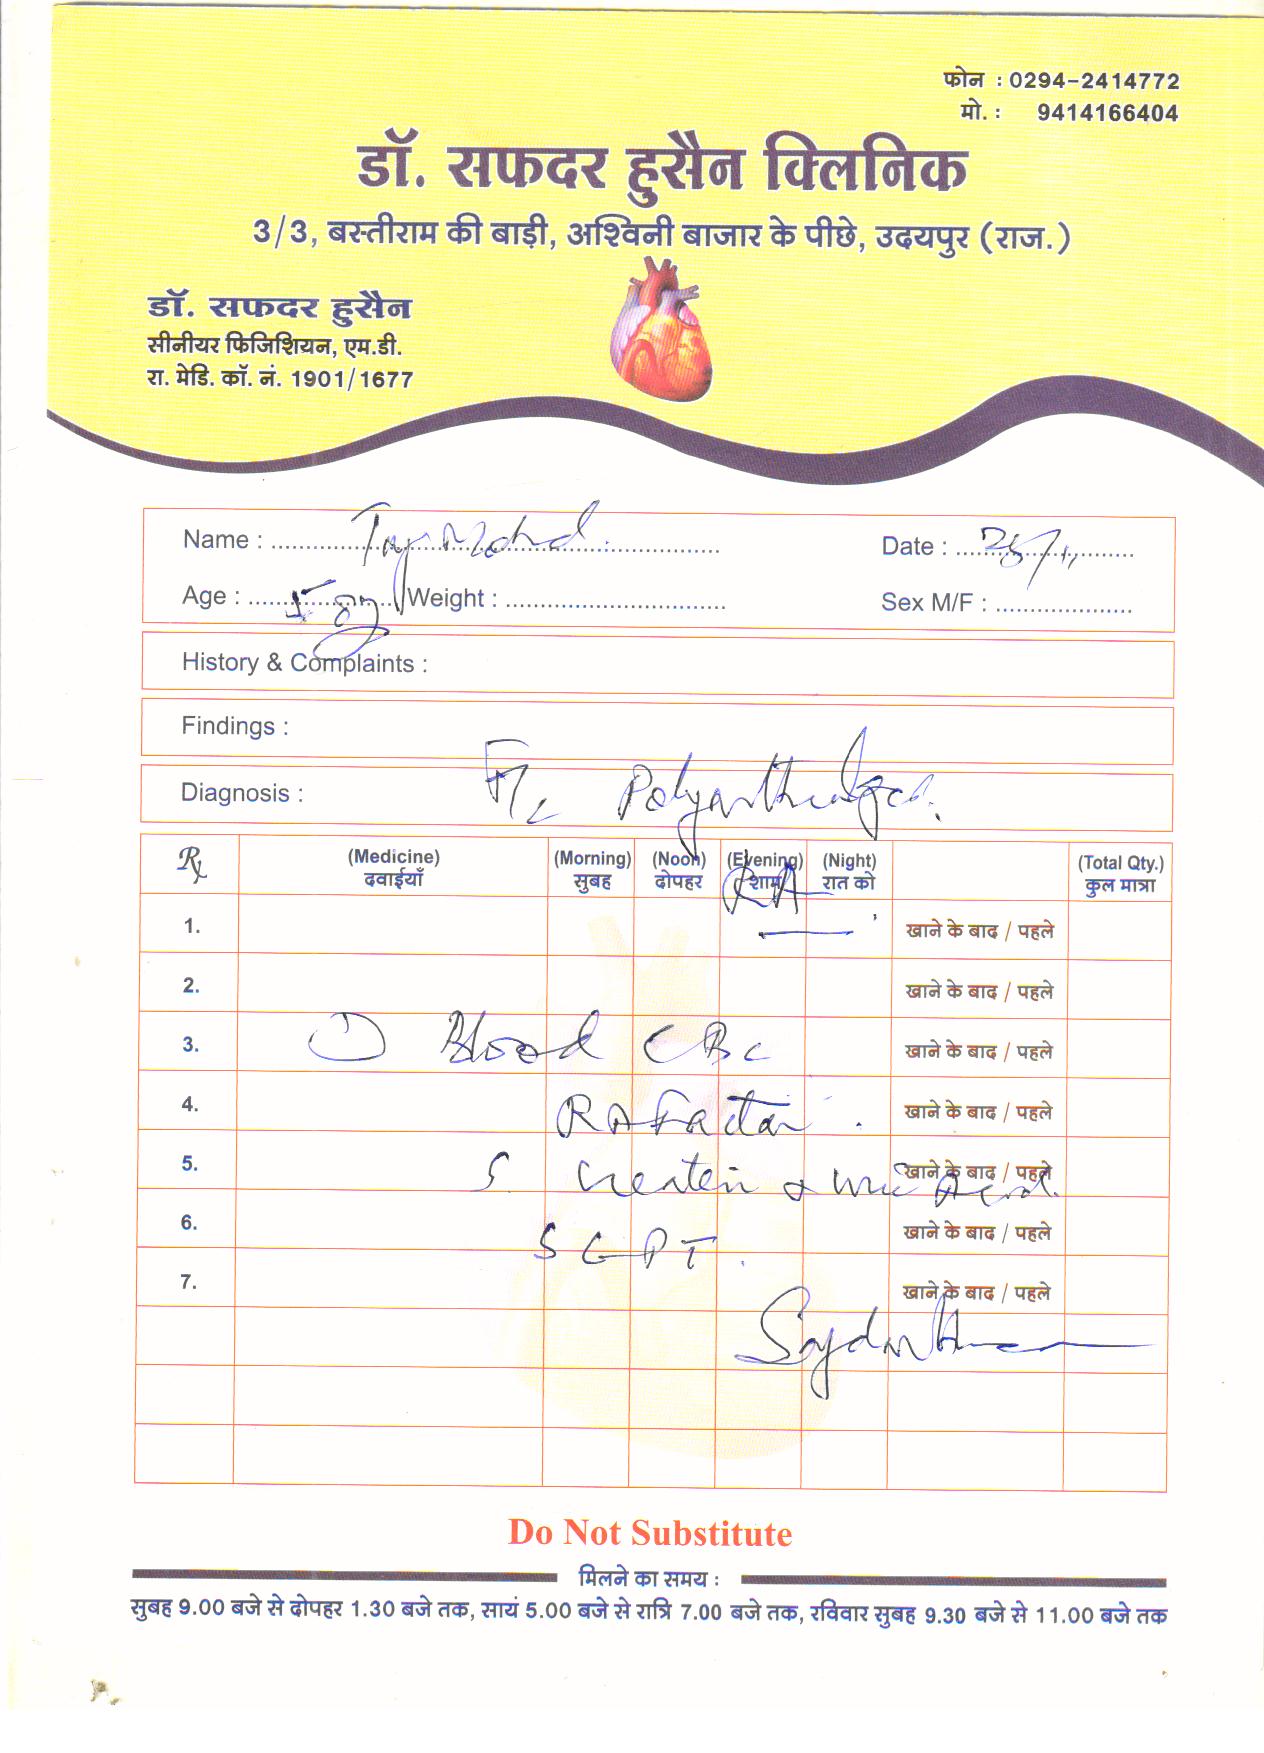 फोन : 0294-2414772
मो. : 9414166404
डॉ. सफदर हुसैन क्लिनिक
3/3, बस्तीराम की बाड़ी, अश्विनी बाजार के पीछे, उदयपुर (राज.)
डॉ. सफदर हुसैन
सीनीयर फिजिशियन, एम.डी.
रा. मेडि. कॉ. नं. 1901/1677
Name : Taj Mohd. Date :
Age : Weight : Sex M/F :
History & Complaints :
Findings :
Diagnosis : Polyarthralgia.
Rx (Medicine) (Morning) (Noon) (Evening) (Night) (Total Qty.)
दवाईयाँ सुबह दोपहर शाम रात को कुल मात्रा
RA
1. खाने के बाद / पहले
2. खाने के बाद / पहले
3. Blood CBC खाने के बाद / पहले
4. RA Factor. खाने के बाद / पहले
5. S. Creatin & Uric Acid. खाने के बाद / पहले
6. SGPT. खाने के बाद / पहले
7. खाने के बाद / पहले
Do Not Substitute
मिलने का समय :
सुबह 9.00 बजे से दोपहर 1.30 बजे तक, सायं 5.00 बजे से रात्रि 7.00 बजे तक, रविवार सुबह 9.30 बजे से 11.00 बजे तक